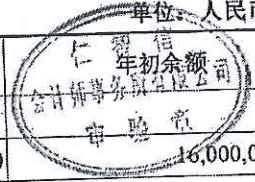 单位：人民币
年初余额
会计师事务所有限公司
审验章
16,000,0